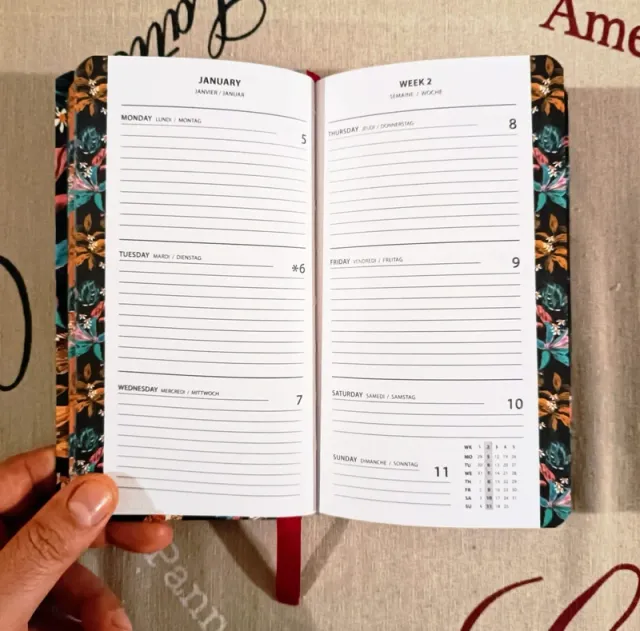 Ame
JANUARY
JANVIER / JANUAR
MONDAY LUNDI / MONTAG
5
TUESDAY MARDI / DIENSTAG
*6
WEDNESDAY MERCREDI / MITTWOCH
7
WEEK 2
SEMAINE / WOCHE
THURSDAY JEUDI / DONNERSTAG
8
FRIDAY VENDREDI / FREITAG
9
SATURDAY SAMEDI / SAMSTAG
10
SUNDAY DIMANCHE / SONNTAG
11
WK 1 2 3 4 5
MO 29 5 12 19 26
TU 30 6 13 20 27
WE 31 7 14 21 28
TH 1 8 15 22 29
FR 2 9 16 23 30
SA 3 10 17 24 31
SU 4 11 18 25
Pann